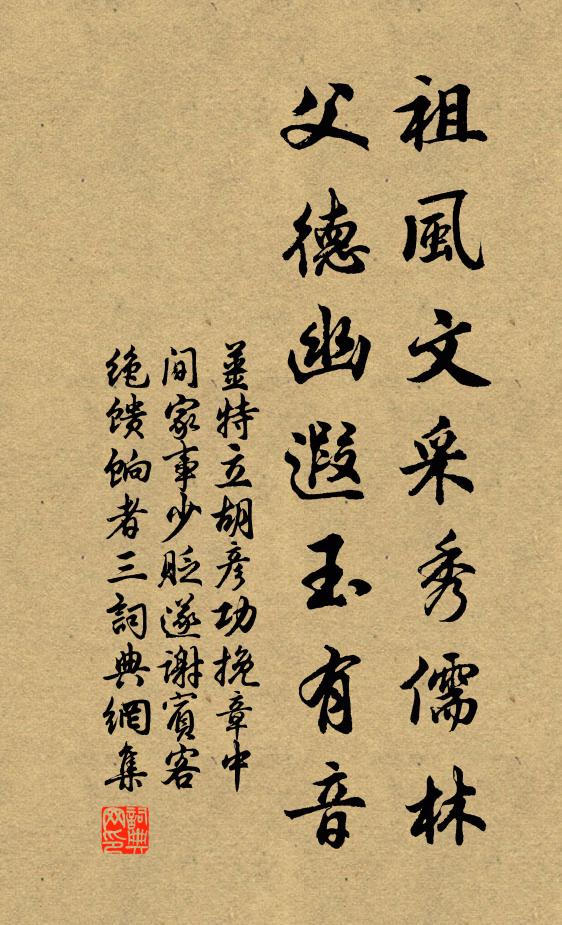 祖風文采秀儒林
父德幽遐玉有音
薑特立胡彦功挽章中
间家事少貶遂谢賓客
绝馈饷者三詞典網集
詞典
网印